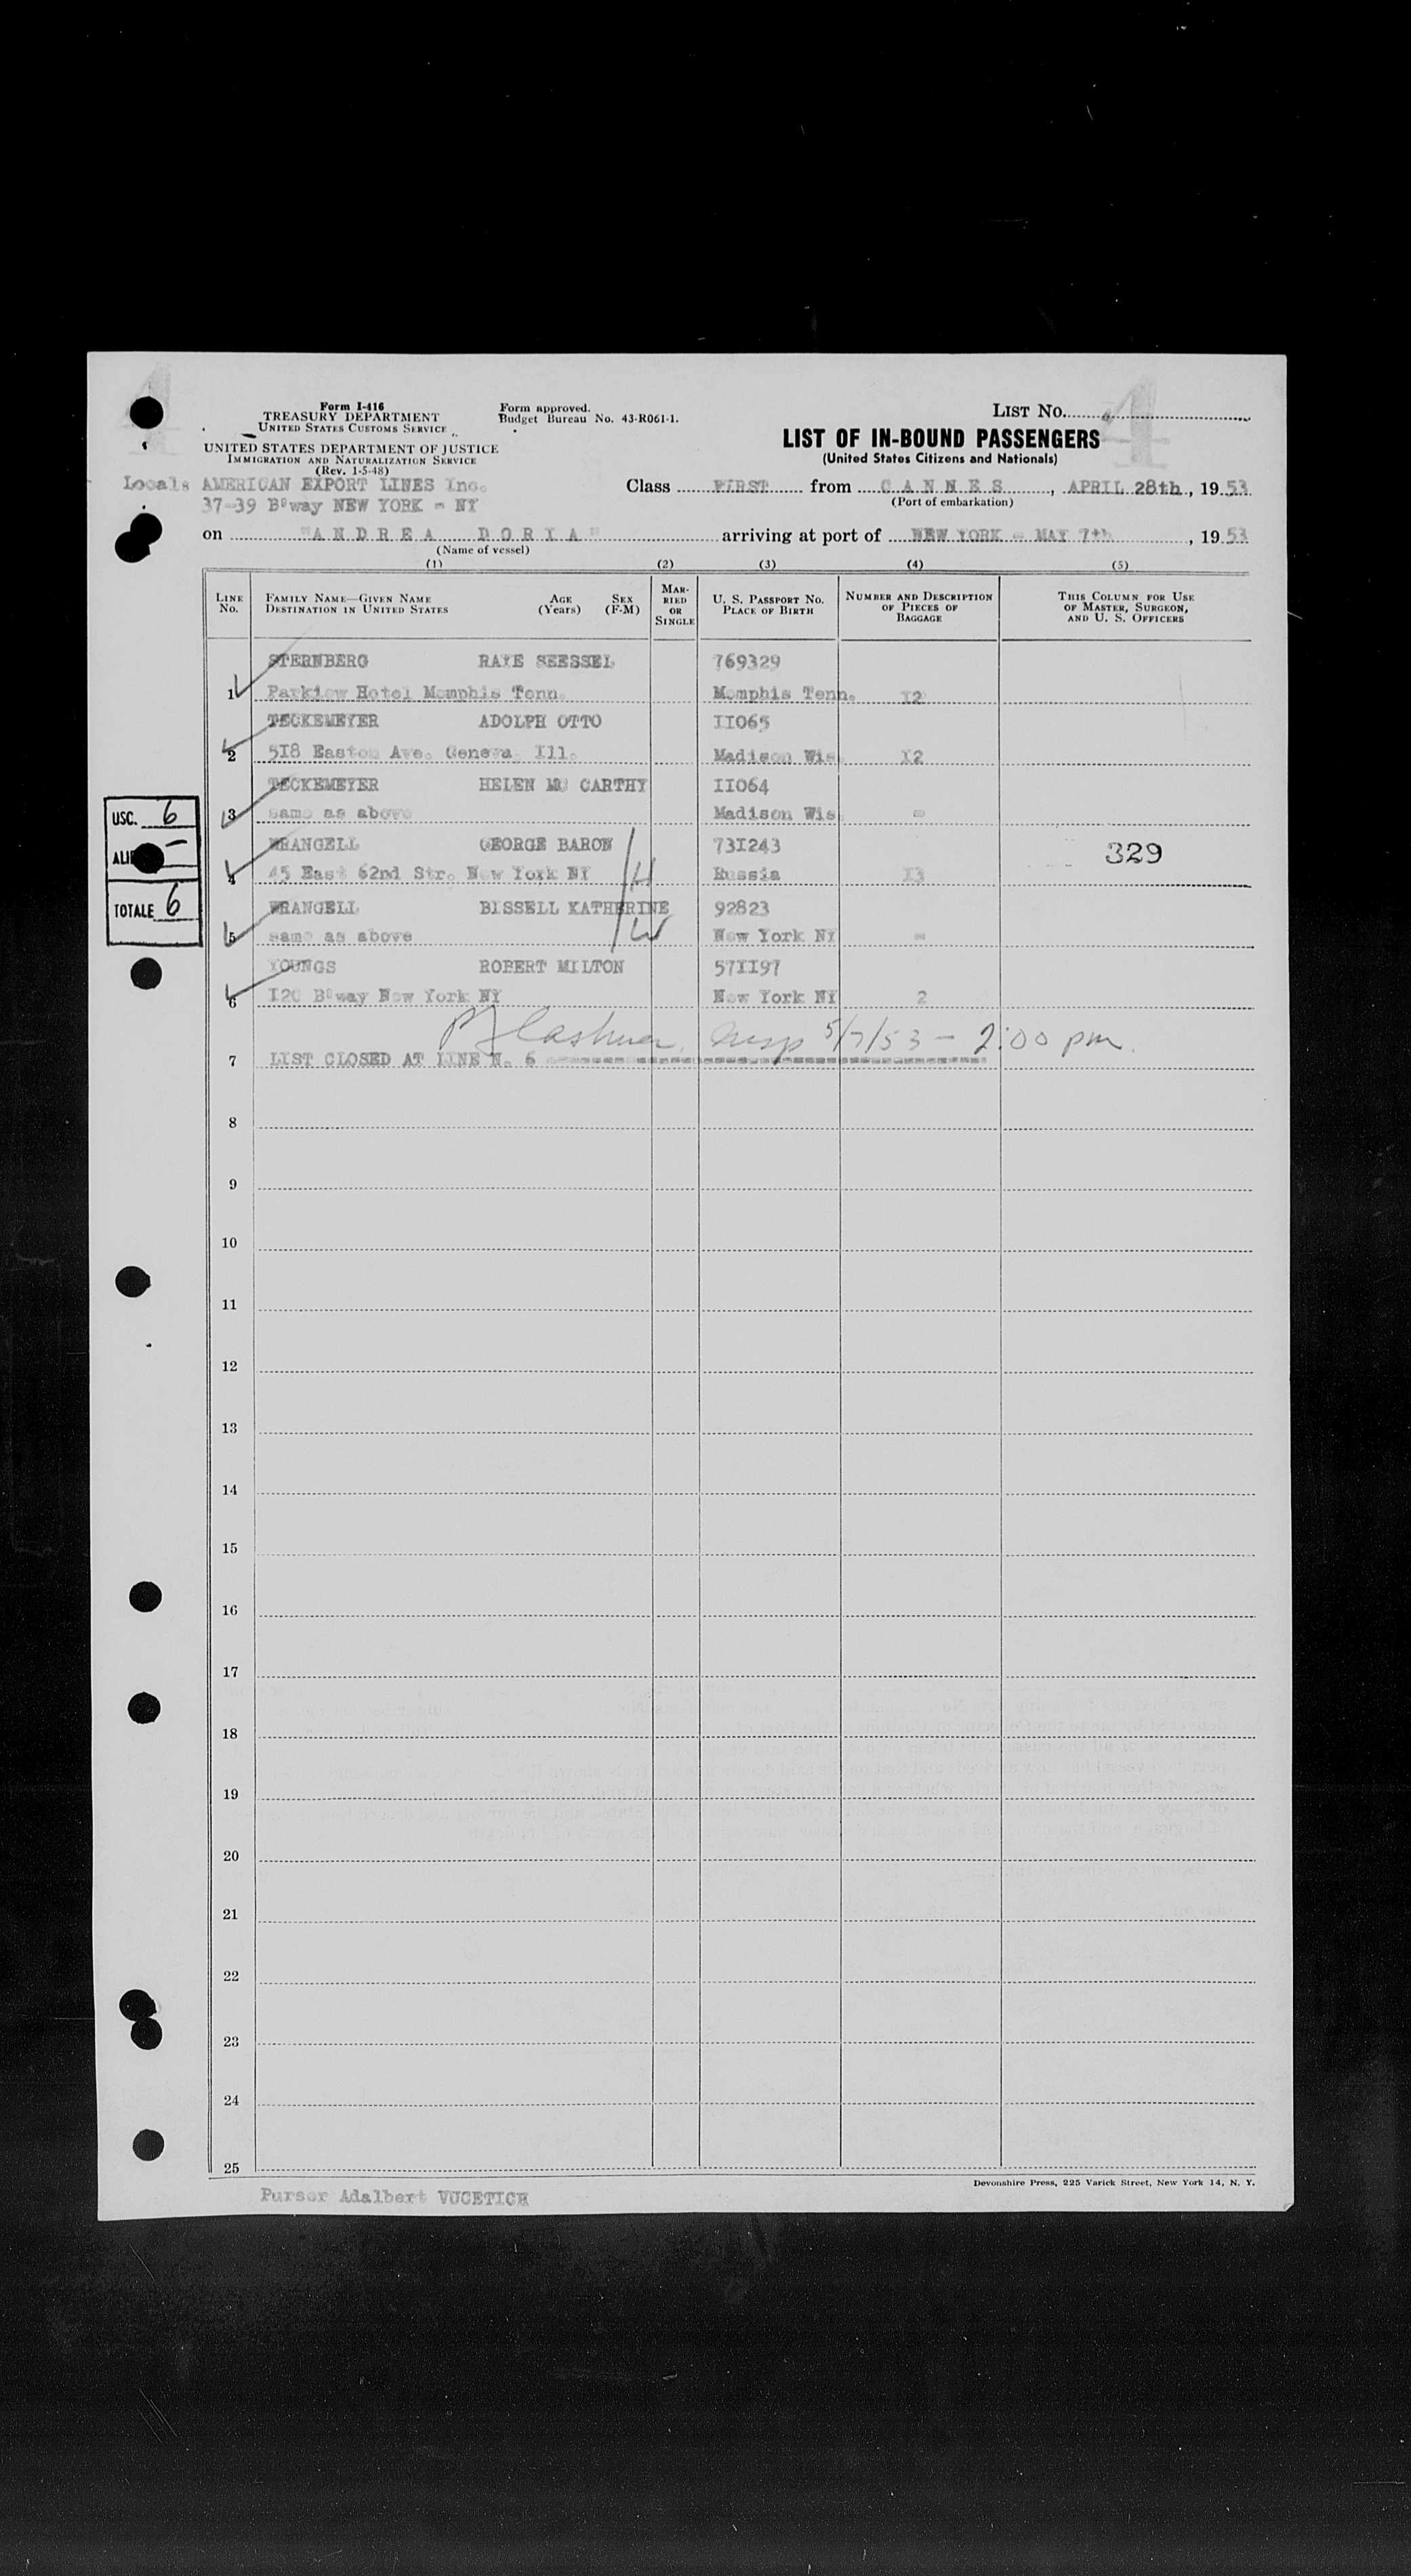 4
Form I-416
TREASURY DEPARTMENT
UNITED STATES CUSTOMS SERVICE
Form approved.
Budget Bureau No. 43-R061-1.
LIST NO. 4
UNITED STATES DEPARTMENT OF JUSTICE
IMMIGRATION AND NATURALIZATION SERVICE
(Rev. 1-5-48)
LIST OF IN-BOUND PASSENGERS
(United States Citizens and Nationals)
Locals AMERICAN EXPORT LINES Inc.
37-39 B°way NEW YORK - NY
Class FIRST from C A N N E S, APRIL 28th, 19 53
(Port of embarkation)
on "A N D R E A D O R I A" arriving at port of NEW YORK - MAY 7th, 19 53
(Name of vessel)
(1) (2) (3) (4) (5)
LINE NO.
FAMILY NAME—GIVEN NAME
DESTINATION IN UNITED STATES
AGE (Years)
SEX (F-M)
MARRIED OR SINGLE
U. S. PASSPORT NO.
PLACE OF BIRTH
NUMBER AND DESCRIPTION OF PIECES OF BAGGAGE
THIS COLUMN FOR USE OF MASTER, SURGEON, AND U. S. OFFICERS
STERNBERG RAYE SEESSEL 769329
1 Parkiew Hotel Memphis Tenn. Memphis Tenn. I2
TECKEMEYER ADOLPH OTTO II065
2 5I8 Easton Ave. Geneva Ill. Madison Wis. I2
TECKEMEYER HELEN MC CARTHY II064
3 same as above Madison Wis. -
WRANGELL GEORGE BARON 73I243 329
4 45 East 62nd Str. New York NY H Russia I3
WRANGELL BISSELL KATHERINE 92823
5 same as above W New York NY -
YOUNGS ROBERT MILTON 57II97
6 I20 B°way New York NY New York NY 2
5/7/53 - 2:00 pm.
7 LIST CLOSED AT LINE N. 6
USC. 6
ALI -
TOTALE 6
8
9
10
11
12
13
14
15
16
17
18
19
20
21
22
23
24
25
Devonshire Press, 225 Varick Street, New York 14, N. Y.
Purser Adalbert VUCETICH